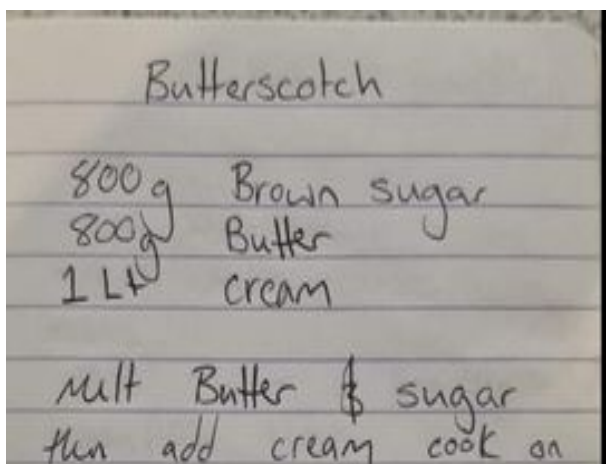 Butterscotch
800g Brown sugar
800g Butter
1 Lt cream
Melt Butter & sugar
then add cream cook on